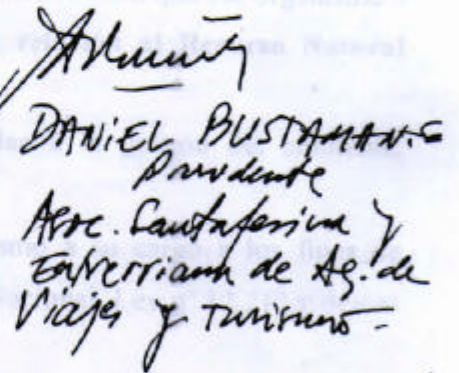 DANIEL BUSTAMANTE
Presidente
Asoc. Santafesina y
Entrerriana de Ag. de
Viajes y Turismo.